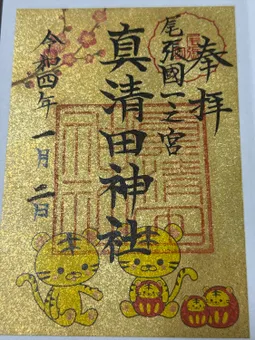 奉拝
尾張國一之宮
真清田神社
令和四年
一月二日